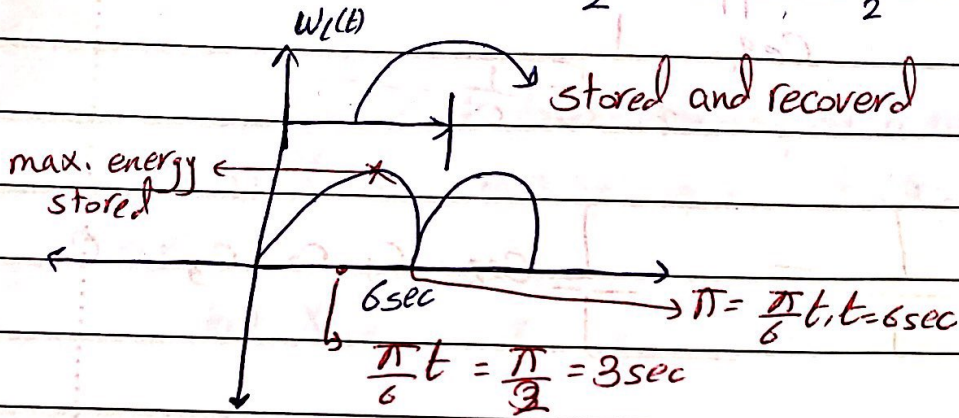 2
2
W_L(t)
stored and recoverd
max. energy
stored
6sec
π = π/6 t, t=6sec
π/6 t = π/2 = 3sec